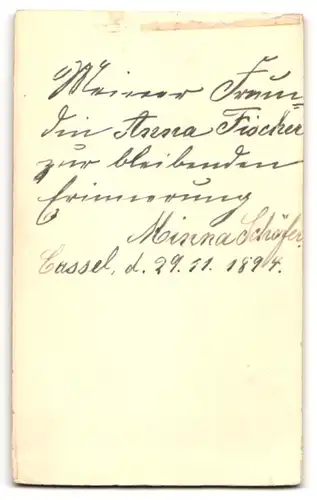 Meiner Freun=
din Anna Fischer
zur bleibenden
Erinnerung
Minna Schäfer.
Cassel, d. 29.11.1894.